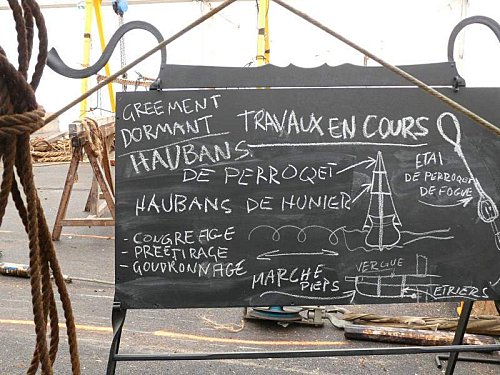 GREEMENT
DORMANT
TRAVAUX EN COURS
HAUBANS
DE PERROQUET
HAUBANS DE HUNIER
ETAI
DE PERROQUET
DE FOGUE
- CONGREAGE
- PREETIRAGE
- GOUDRONNAGE
MARCHE
PIEPS
VERGUE
ETRIERS